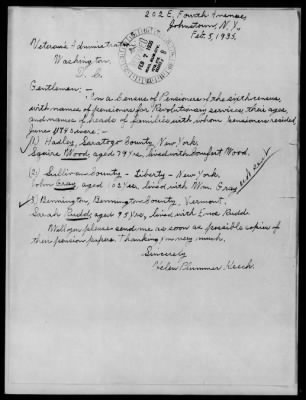 202 E. Fourth Avenue,
Johnstown, N.Y.,
Feb. 5, 1935.
Veterans Administration
Washington,
D. C.
FEB 7 1935
Gentlemen; -
In a Census of Pensioners of the sixth census,
with names of pensioners for Revolutionary services, their ages,
and names of heads of families with whom pensioners resided
June 1, 1840 are: -
(1) Hadley, Saratoga County, New York.
Squire Wood, aged 79 yrs, lived with Comfort Wood.
(2) Sullivan County - Liberty - New York.
John Gray, aged 102 yrs, lived with Wm. Gray
3) Bennington, Bennington County, Vermont.
Sarah Rudd, aged 93 yrs, lived with Enos Rudd.
Will you please send me as soon as possible copies of
their pension papers. Thanking you very much,
Sincerely
Helen Plummer Keech.